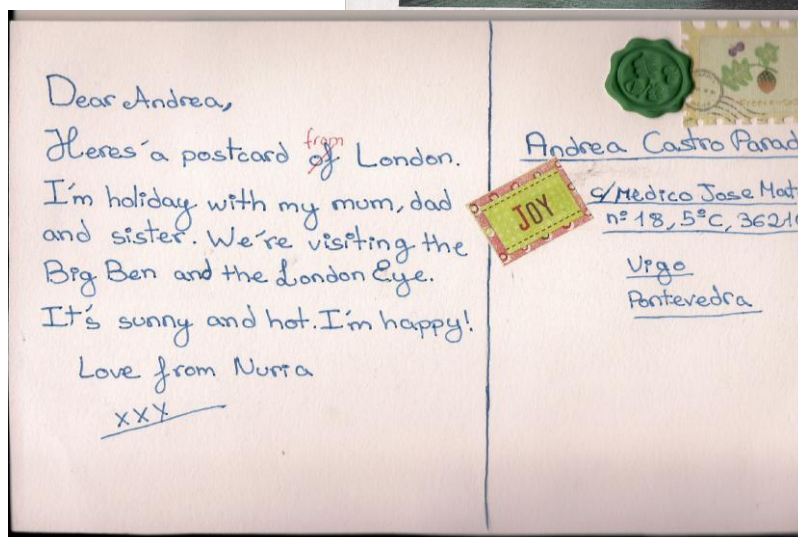 Dear Andrea,
Heres'a postcard of from London.
I'm holiday with my mum, dad
and sister. We're visiting the
Big Ben and the London Eye.
It's sunny and hot. I'm happy!
Love from Nuria
xxx
JOY
Andrea Castro Parad
c/ Medico Jose Mat
nº 18, 5ºC, 3621
Vigo
Pontevedra